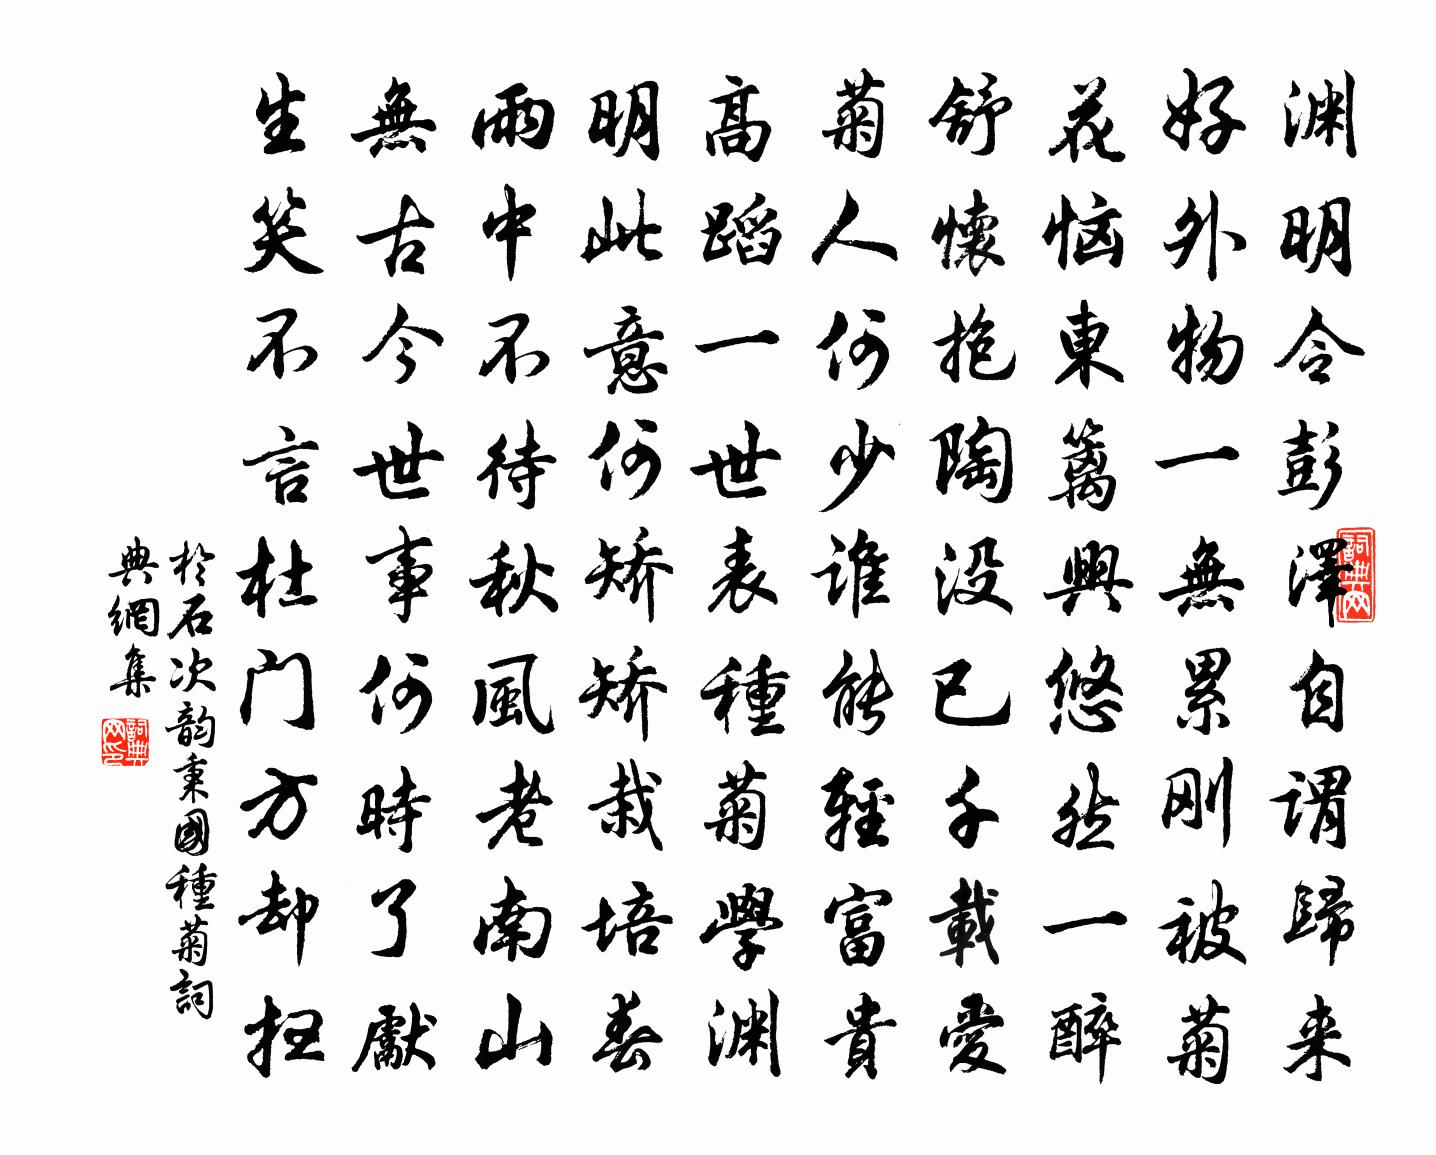 渊明令彭澤自謂歸来
好外物一無累刚被菊
花恼東篱興悠然一醉
舒懷抱陶没已千載愛
菊人何少谁能輕富貴
高蹈一世表種菊學渊
明此意何矫矫栽培春
雨中不待秋風老南山
無古今世事何時了獻
生笑不言杜门方却扫
於石次韵秉國種菊詞
典網集
詞典网
詞典网印